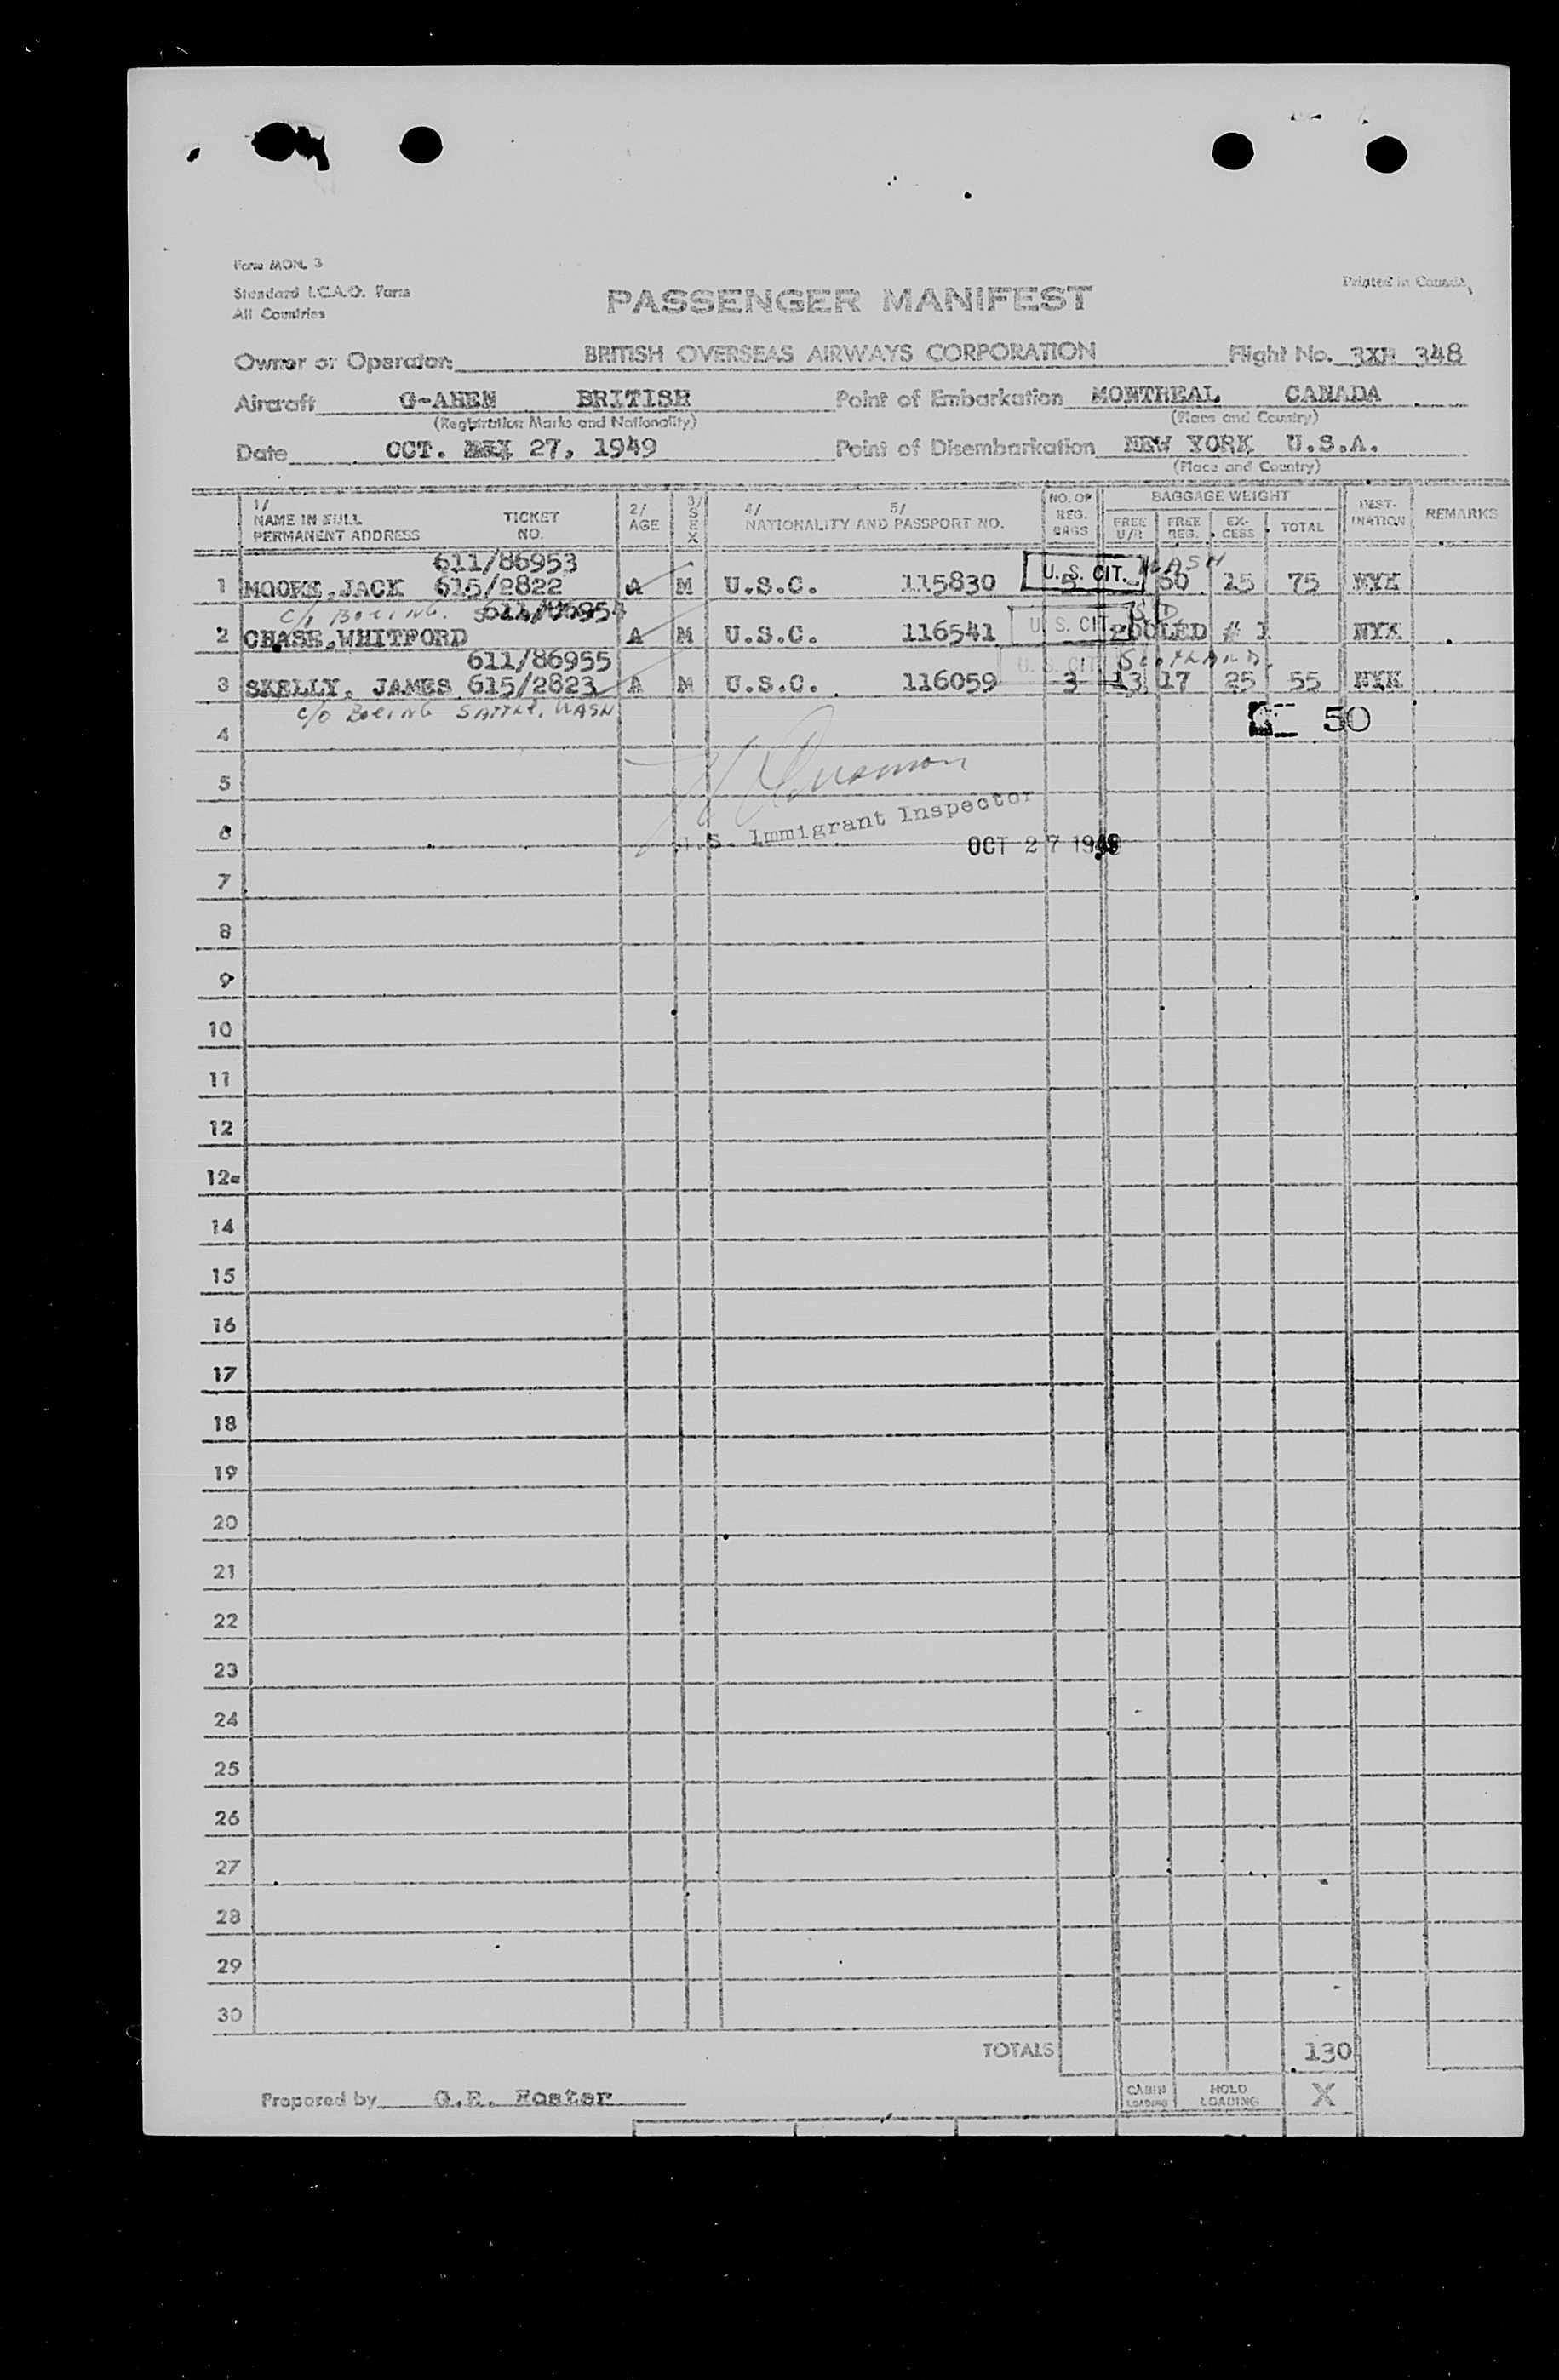 Form MON. 3
Standard I.C.A.O. Form
All Countries
Printed in Canada
PASSENGER MANIFEST
Owner or Operator: BRITISH OVERSEAS AIRWAYS CORPORATION Flight No. 348
Aircraft G-AHEN BRITISH Point of Embarkation MONTREAL CANADA
(Registration Marks and Nationality) (Place and Country)
Date OCT. 27, 1949 Point of Disembarkation NEW YORK U.S.A.
(Place and Country)
1/ NAME IN FULL PERMANENT ADDRESS TICKET NO. 2/ AGE 3/ SEX 4/ 5/ NATIONALITY AND PASSPORT NO. NO. OF REG. BAGS BAGGAGE WEIGHT FREE U/R FREE REG. EX-CESS TOTAL DEST-INATION REMARKS
611/86953
1 MOORE, JACK 615/2822 A M U.S.C. 115830 5 U. S. CIT. WASH 60 15 75 NYK
c/o BOEING. 611/86954
2 CHASE, WHITFORD A M U.S.C. 116541 U. S. CIT POOLED # 1 NYK
611/86955
3 SKELLY, JAMES 615/2823 A M U.S.C. 116059 3 U. S. CIT 13 17 25 55 NYK
c/o BOEING SATTLE, WASH
50
4
5
6
U.S. Immigrant Inspector
OCT 27 1949
7
8
9
10
11
12
12a
14
15
16
17
18
19
20
21
22
23
24
25
26
27
28
29
30
TOTALS 130
Prepared by G.E. Foster CABIN LOADING HOLD LOADING X